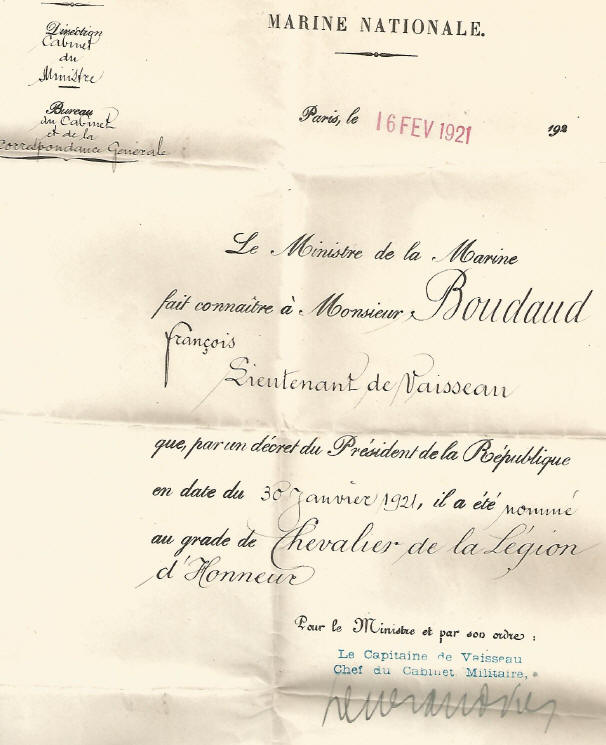 MARINE NATIONALE.
Direction
Cabinet
du
Ministre
Bureau
du Cabinet
et de la
Correspondance Générale
Paris, le 16 FEV 1921 192
Le Ministre de la Marine
fait connaître à Monsieur, Boudaud
françois
Lieutenant de Vaisseau
que, par un décret du Président de la République
en date du 30 Janvier 1921, il a été nommé
au grade de Chevalier de la Légion
d'Honneur
Pour le Ministre et par son ordre :
Le Capitaine de Vaisseau
Chef du Cabinet Militaire,